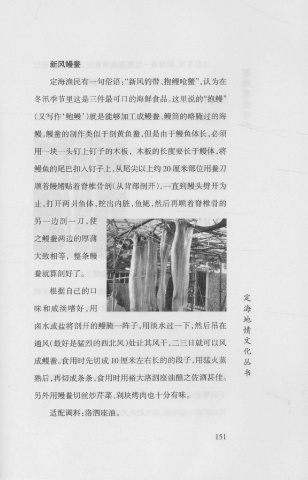 新风鳗鲞
定海渔民有一句俗语：“新风钓带、抱鳗呛蟹”，认为在
冬汛季节里这是三件最可口的海鲜食品。这里说的“抱鳗”
（又写作‘鲍鳗’）就是能够加工成鳗鲞、鳗筒的略腌过的海
鳗。鳗鲞的制作类似于剖黄鱼鲞，但是由于鳗鱼体长，必须
用一块一头钉上钉子的木板，木板的长度要长于鳗体，将
鳗鱼的尾巴扣入钉子上，从尾尖以上约20厘米部位用鲞刀
顺着鳗鳍贴着脊椎骨剖（从背部剖开），一直到鳗头劈开为
止。打开两爿鱼体，挖出内脏、鱼鳃，然后再顺着脊椎骨的
另一边剖一刀，使
之鳗鲞两边的厚薄
大致相等，整条鳗
鲞就算剖好了。
根据自己的口
味和咸淡嗜好，用
卤水或盐将剖开的鳗腌一阵子，用淡水过一下，然后吊在
通风（最好是猛烈的西北风）处让其风干，二三日就可以风
成鳗鲞。食用时先切成10厘米左右长的的段子，用猛火蒸
熟后，再切成条条，食用时用裕大洛泗座油醮之佐酒甚佳。
另外用鳗鲞切丝炒芹菜、剁块烤肉也十分有味。
适配调料：洛泗座油。
定海地情文化丛书
151